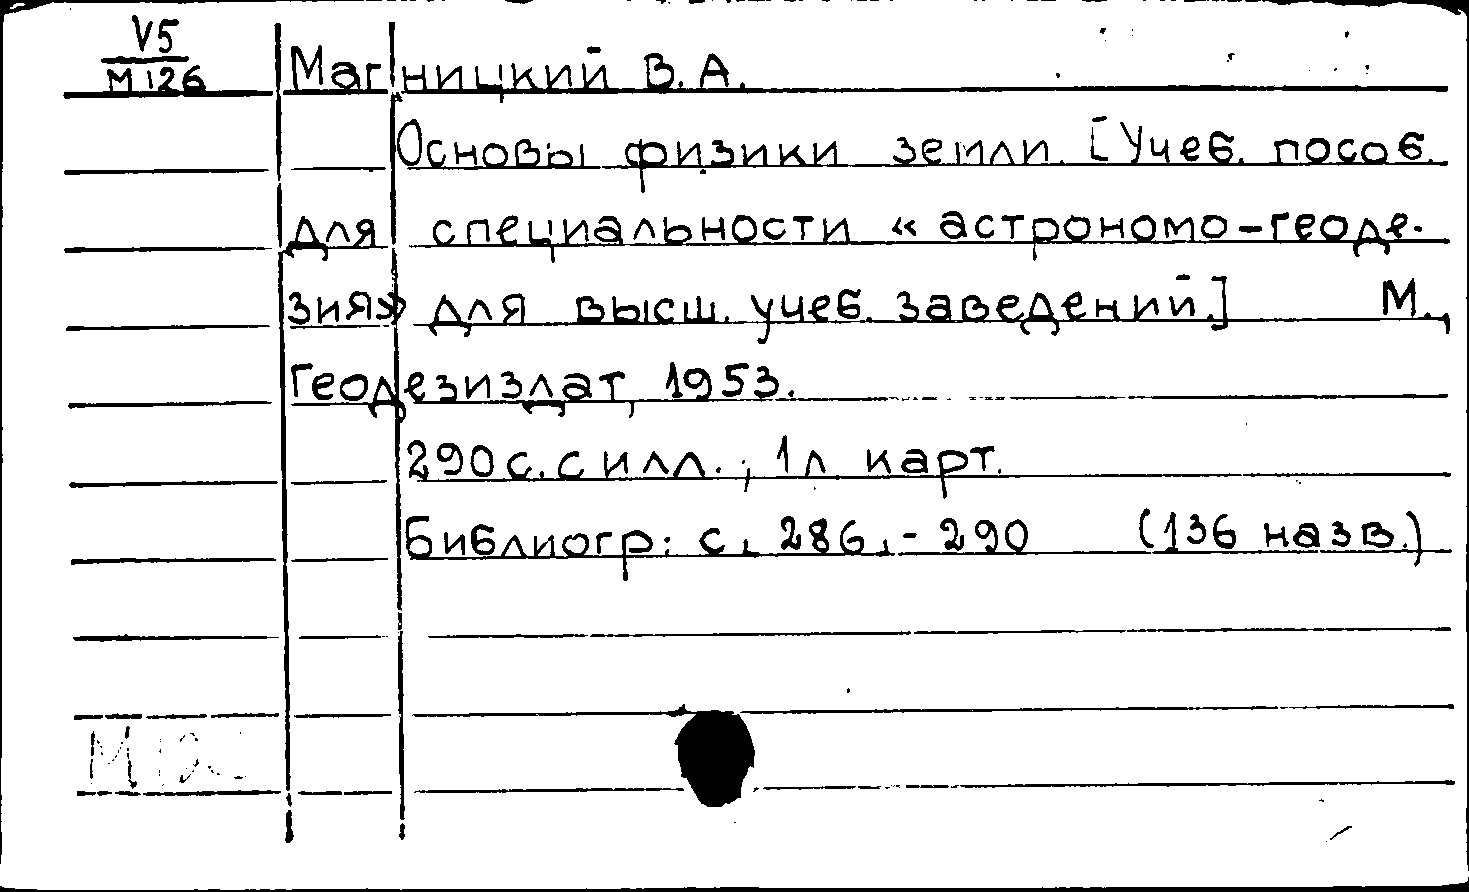 V5
М126
Магницкий В. А.
Основы физики земли. [Учеб. пособ.
для специальности « астрономо-геоде-
зия» для высш. учеб. заведений.] М.,
Геодезиздат, 1953.
290 с. с илл.; 1 л карт.
Библиогр: с. 286.-290 (136 назв.)
М12